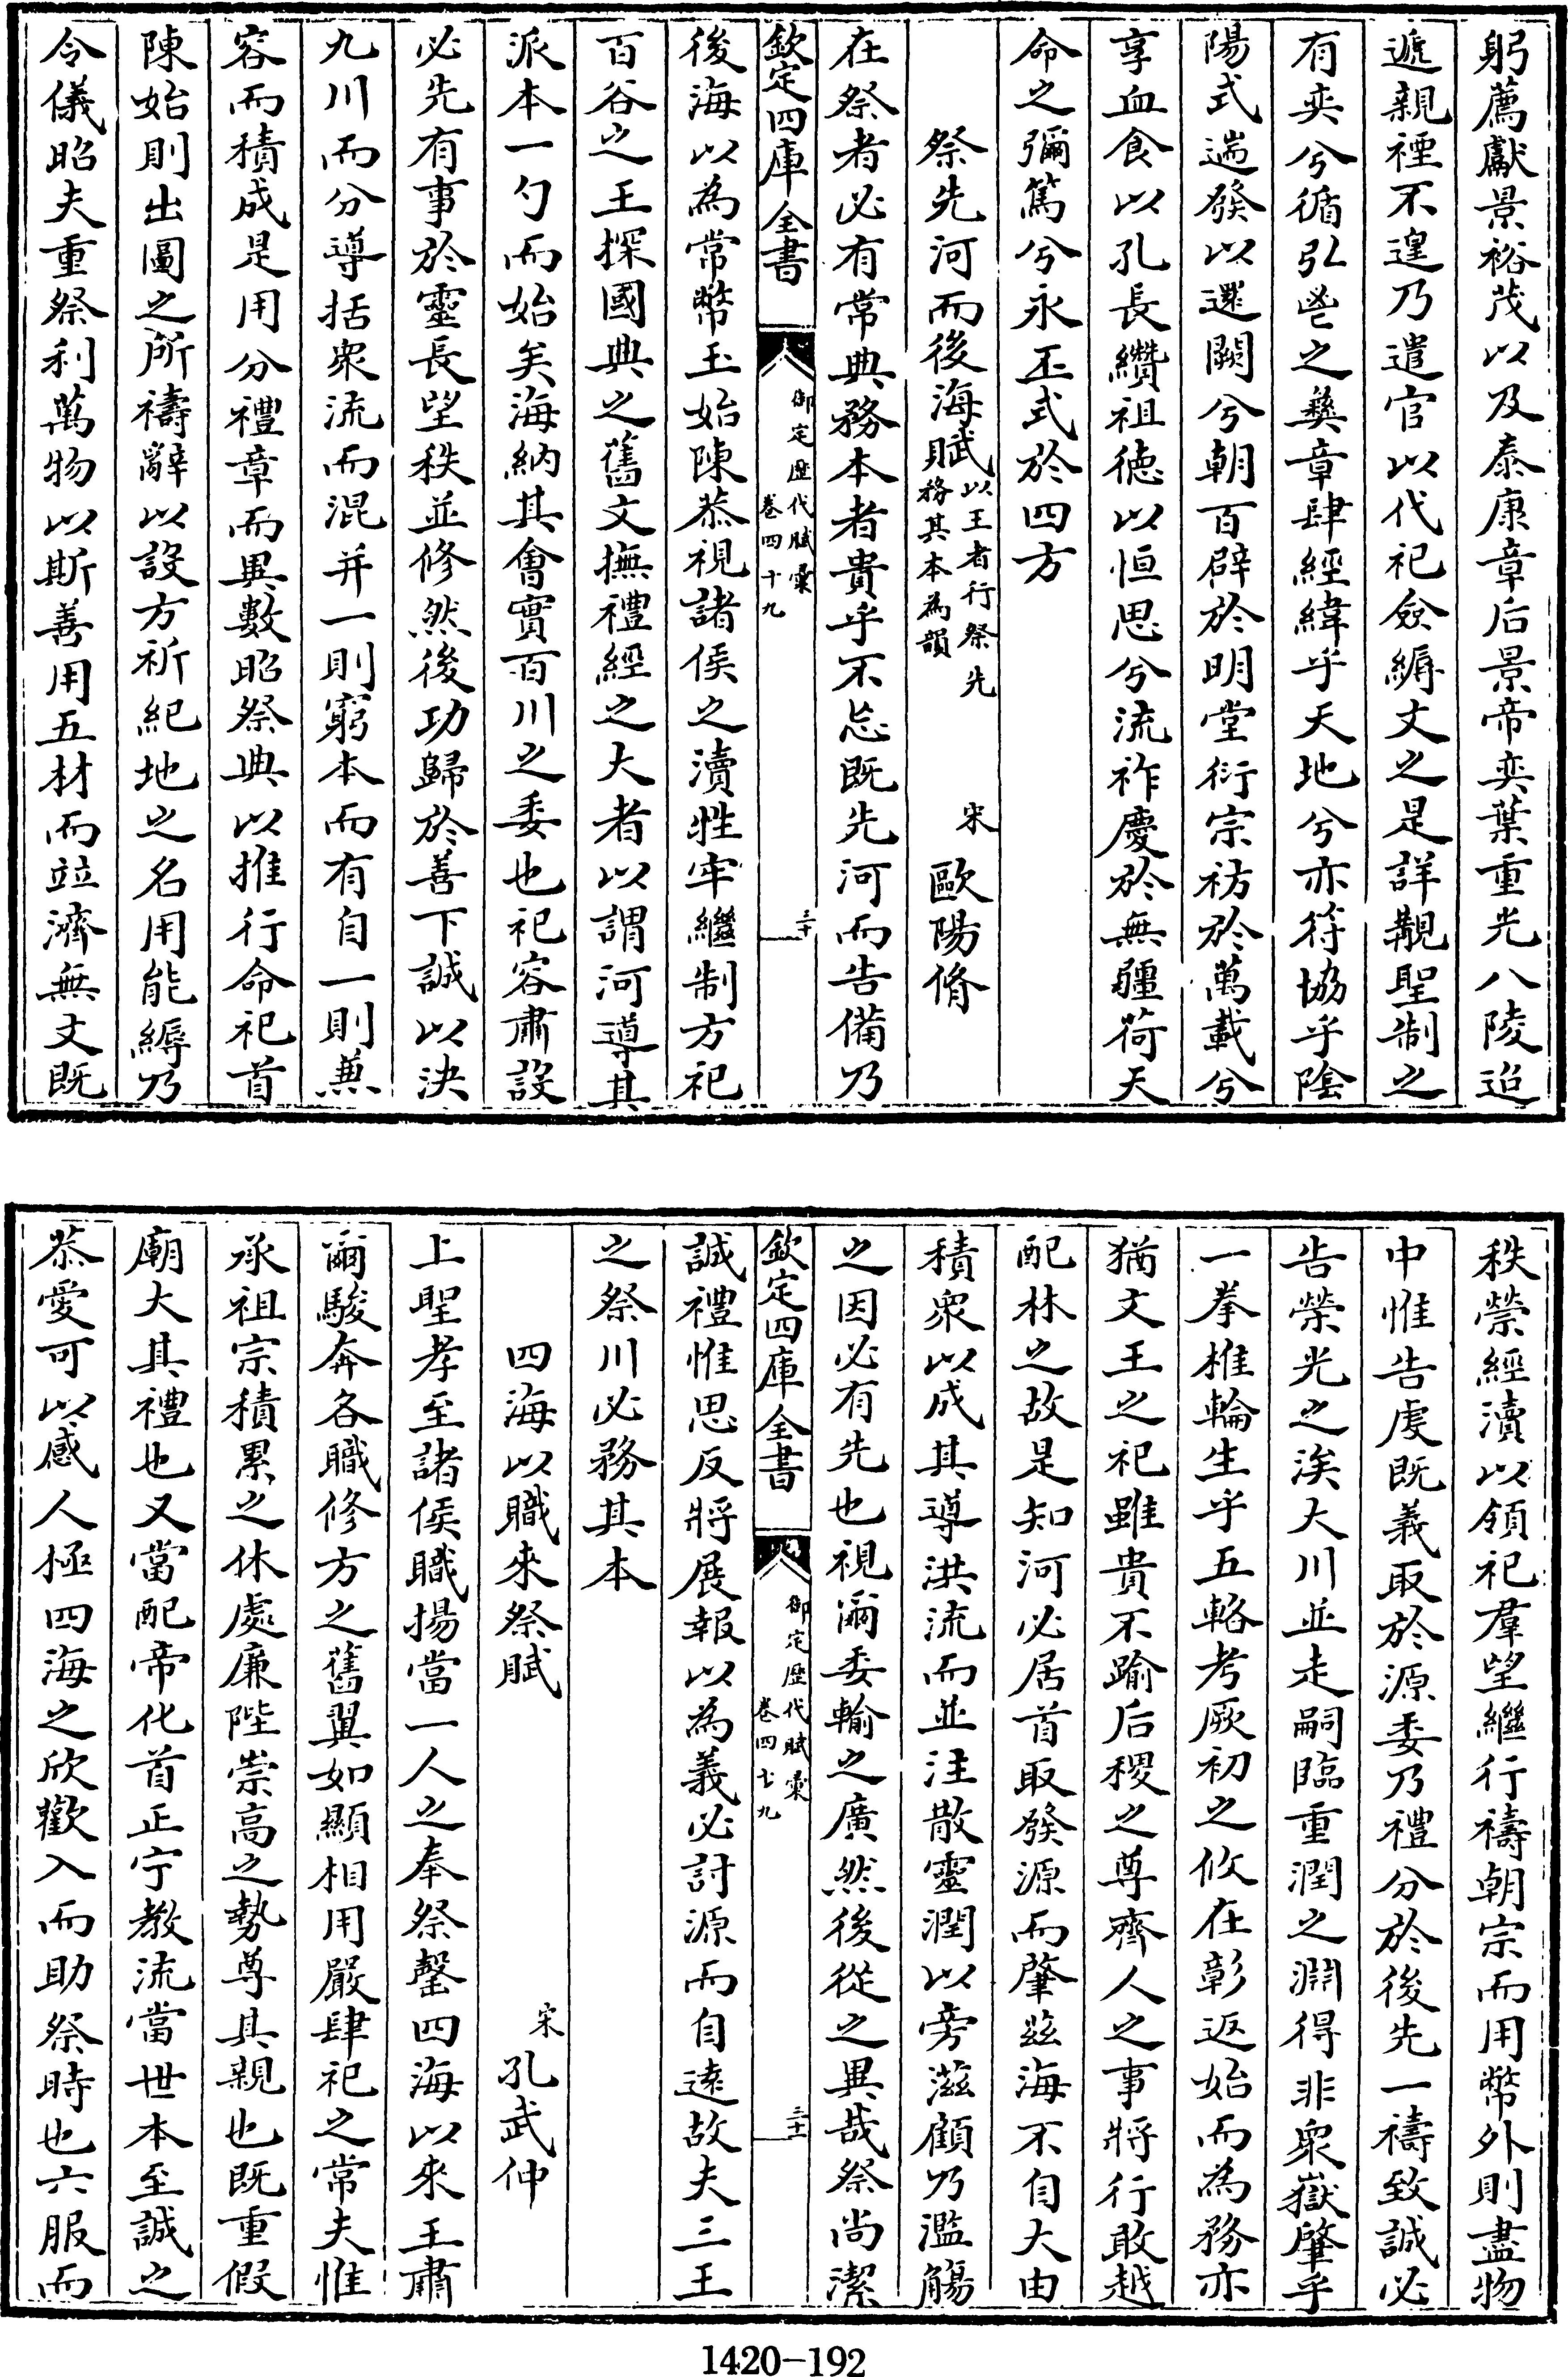 躬薦獻景裕茂以及泰康章后景帝奕葉重光八陵迨
遞親禋不遑乃遣官以代祀僉縟文之是詳覩聖制之
有奕兮循弘邕之彝章肆經緯乎天地兮亦符協乎陰
陽式遄發以還闕兮朝百辟於明堂衍宗祊於萬載兮
享血食以孔長纘祖徳以恒思兮流祚慶於無疆荷天
命之彌篤兮永丕式於四方
祭先河而後海賦以王者行祭先務其本為韻 宋 歐陽脩
在祭者必有常典務本者貴乎不忘既先河而告備乃
欽定四庫全書 御定歴代賦彚 卷四十九 三十
後海以為常幣玉始陳恭視諸侯之瀆牲牢繼制方祀
百谷之王探國典之舊文撫禮經之大者以謂河導其
派本一勺而始矣海納其㑹實百川之委也祀容肅設
必先有事於靈長望秩並修然後功歸於善下誠以決
九川而分導括衆流而混并一則窮本而有自一則兼
容而積成是用分禮章而異數昭祭典以推行命祀首
陳始則出圖之所禱辭以設方祈紀地之名用能縟乃
令儀昭夫重祭利萬物以斯善用五材而竝濟無文既
秩禜經瀆以領祀羣望繼行禱朝宗而用幣外則盡物
中惟告虔既義取於源委乃禮分於後先一禱致誠必
告榮光之涘大川並走嗣臨重潤之淵得非衆嶽肇乎
一拳椎輪生乎五輅考厥初之攸在彰返始而為務亦
猶文王之祀雖貴不踰后稷之尊齊人之事將行敢越
配林之故是知河必居首取發源而肇兹海不自大由
積衆以成其導洪流而並注散靈潤以旁滋顧乃濫觴
之因必有先也視爾委輸之廣然後從之異哉祭尚潔
欽定四庫全書 御定歴代賦彚 卷四十九 三十一
誠禮惟思反將展報以為義必討源而自遠故夫三王
之祭川必務其本
四海以職來祭賦 宋 孔武仲
上聖孝至諸侯職揚當一人之奉祭罄四海以來王肅
爾駿奔各職修方之舊翼如顯相用嚴肆祀之常夫惟
承祖宗積累之休處㢘陛崇高之勢尊其親也既重假
廟大其禮也又當配帝化首正宁教流當世本至誠之
恭愛可以感人極四海之欣歡入而助祭時也六服而
1420-192